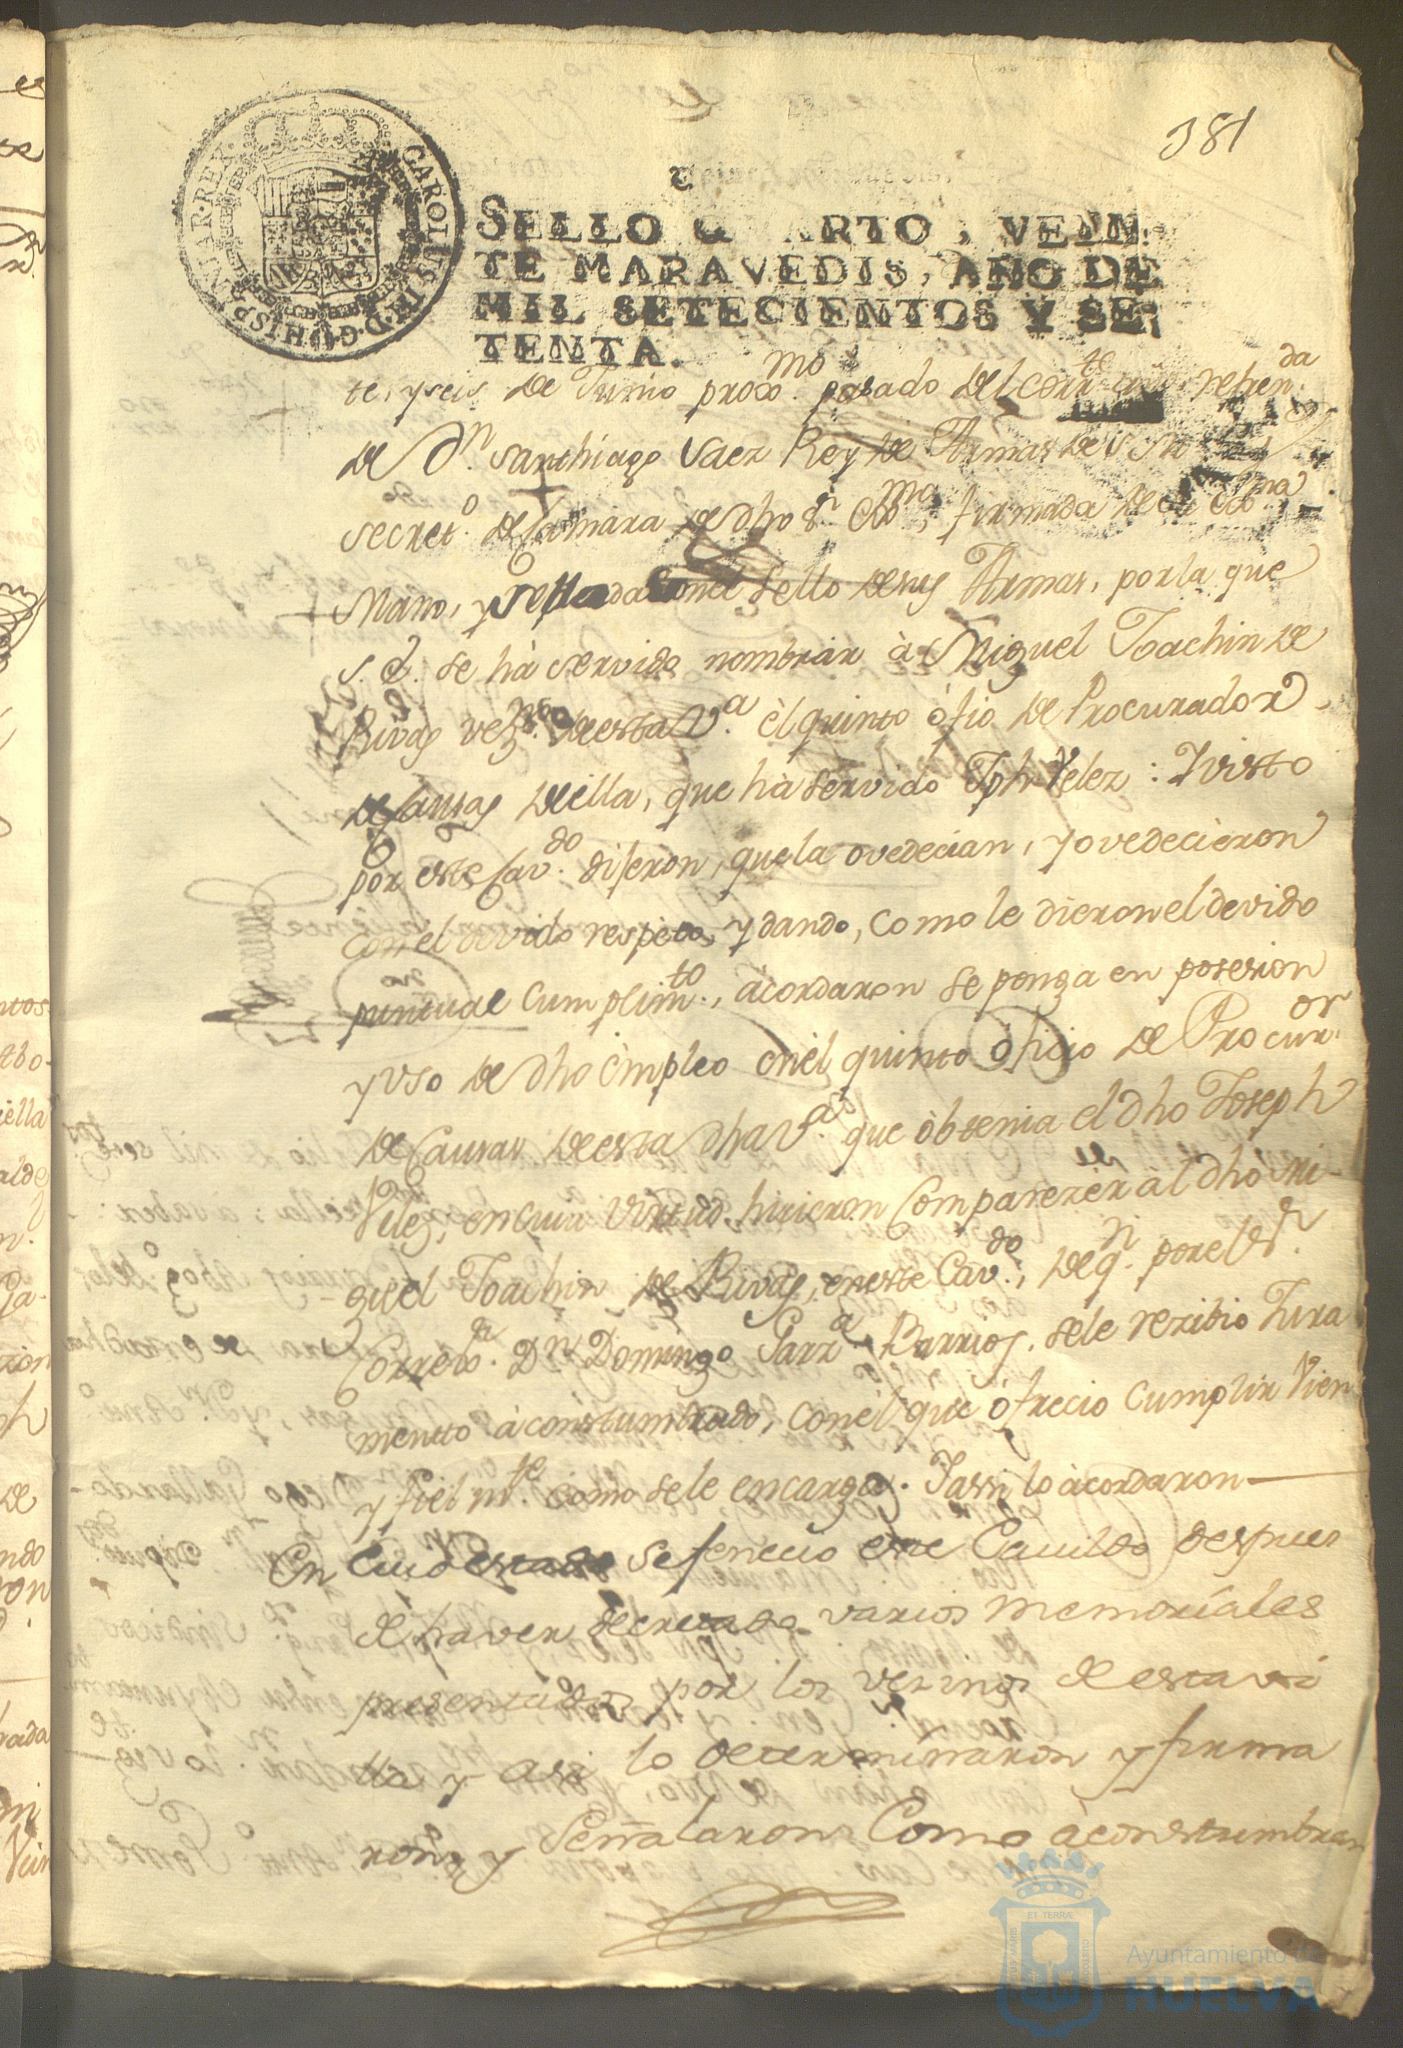 381
CAROLUS III D G HISPANIAR REX
SELLO QUARTO, VEIN-
TE MARAVEDIS, AÑO DE
MIL SETECIENTOS Y SE-
TENTA.
te, y seis de Junio proxo.mo pasado del corrte año refren.da
de Dn. Santhiago Saez Rey de Armas de S. M.
Secret.o de Camara de dho Sr. Exmo, firmada de su Exma.
Mano, y sellada con el Sello de sus Armas, por la que
S. E. se há servido nombrar à Miguel Joachin de
Rivas vez.no de esta V.a èl quinto òfio de Procurador
de Causas de ella, que hà servido Jph Velez: Y visto
por este Cav.do dijeron, que la ovedecian, y ovedecièron
con el devido respeto, y dando, como le dieron el devido
puntual cumplim.to, àcordaron se ponga en posesion
y uso de dho èmpleo en èl quinto òficio de Procur.or
de Causas de esta dha V.a que òbtenia el dho Joseph
Velez, en cuia virtud hicieron Comparezèr àl dho Mi-
guel Joachin de Rivas, en este Cav.do, de q.n por el Sr.
Correxo.r Dn. Domingo Garz.a Barrios, se le rezibio Jura
mento àcostumbrado, con èl que òfrecio cumplir vien
y fielm.te como se le encarga. Y assi lo àcordaron
En cuio estado se fenecio este Cavildo despues
de haver decretado varios memoriales
presentados por los vezinos de esta vi
lla y asi lo determinaron y firma
ron y Señalaron Como àcostumbran
ET TERRÆ
Ayuntamiento de
HUELVA